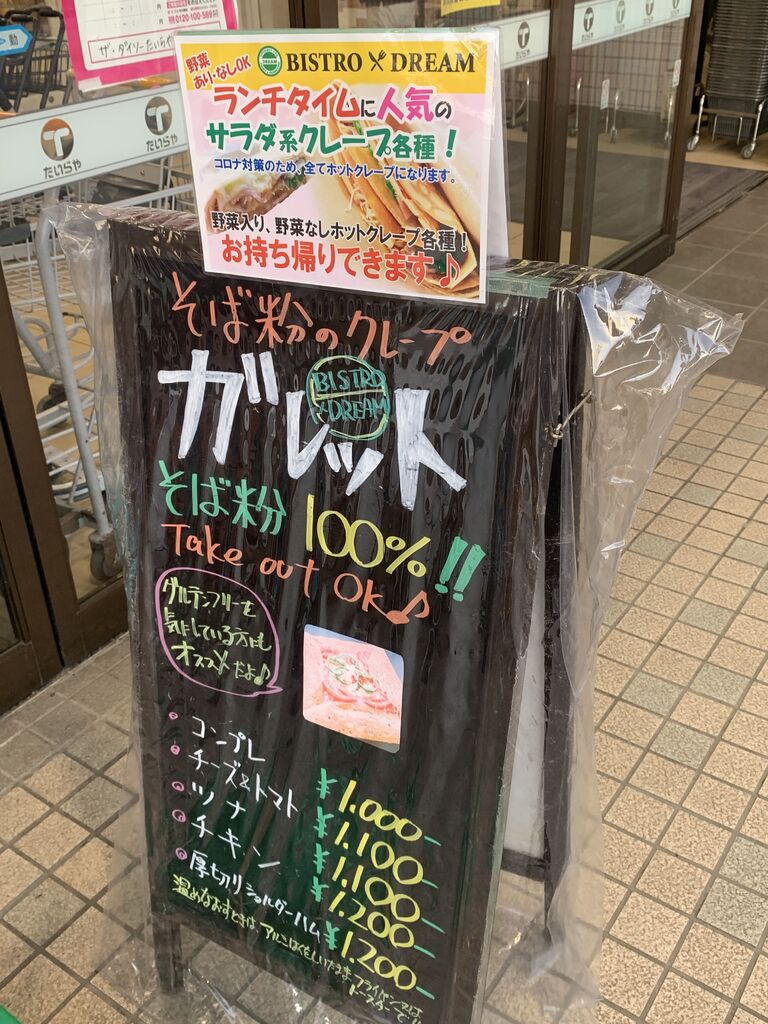 動
0120-100-569
ザ・ダイソーたいらや
たいらや
たいらや
たいらや
たいらや
野菜
あり・なしOK
DREAM
BISTRO DREAM
ランチタイムに人気の
サラダ系クレープ各種！
コロナ対策のため、全てホットクレープになります。
野菜入り、野菜なしホットクレープ各種！
お持ち帰りできます♪
そば粉のクレープ
BISTRO
DREAM
ガレット
そば粉 100%!!
Take out OK♪
グルテンフリーを
気にしている方にも
オススメだよ♪
コンプレ ¥1,000-
チーズ&トマト ¥1,100-
ツナ ¥1,100-
チキン ¥1,200-
厚切りショルダーハム ¥1,200-
温めなおすときは アルミはくをしいたまま フライパン又は
トースターで!!